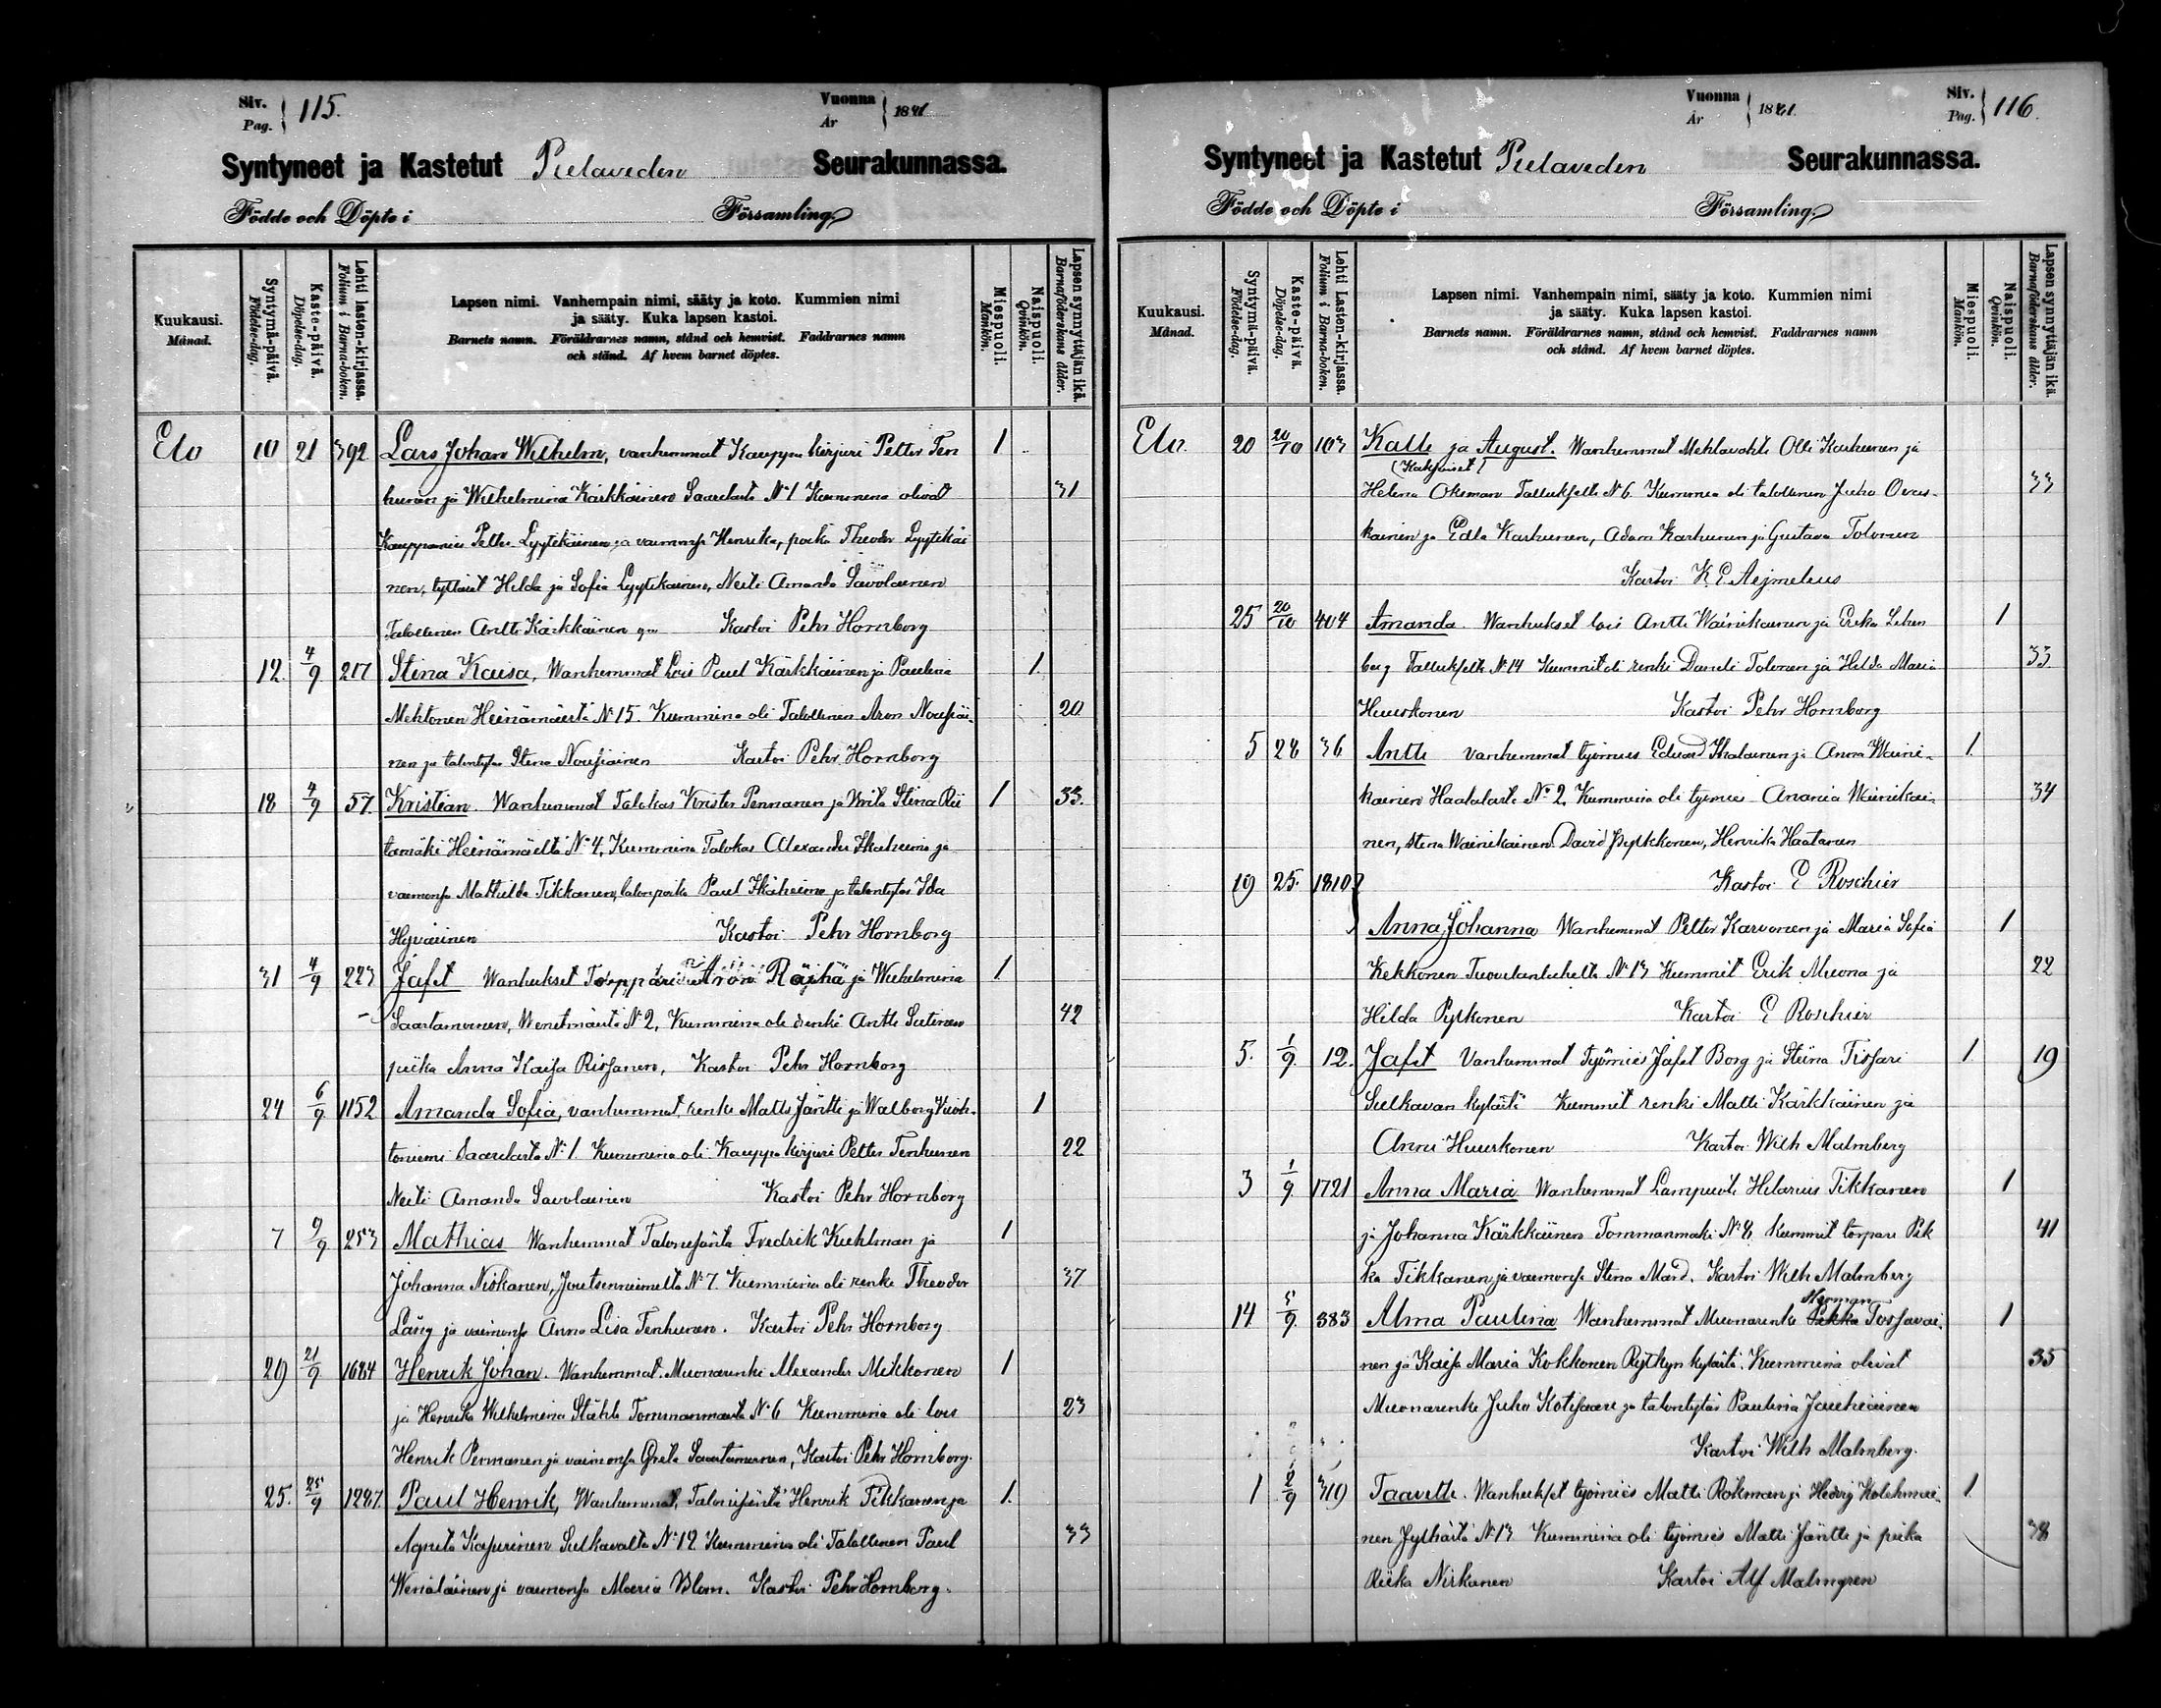 Siv. Pag. 115.
Vuonna År 1881
Syntyneet ja Kastetut Pielaveden Seurakunnassa.
Födde och Döpte i Församling.
Kuukausi. Månad.
Syntymä-päivä. Födelse-dag.
Kaste-päivä. Döpelse-dag.
Lehti lasten-kirjassa. Folium i Barna-boken.
Lapsen nimi. Vanhempain nimi, sääty ja koto. Kummien nimi
ja sääty. Kuka lapsen kastoi.
Barnets namn. Föräldrarnes namn, stånd och hemvist. Faddrarnes namn
och stånd. Af hvem barnet döptes.
Miespuoli. Mankön.
Naispuoli. Qvinkön.
Lapsen synnyttäjän ikä. Barnaföderskans ålder.
Elo 10 21 392 Lars Johan Wilhelm, vanhemmat Kauppa kirjuri Petter Ten 1
hunen ja Wilhelmina Kärkkäinen Saarelasta N:o 1 Kummina olivat 31
Kauppamies Petter Lyytikäinen ja vaimonsa Henrika, poika Theodor Lyytikäi
nen, tyttäret Hilda ja Sofia Lyytikäinen, Neiti Amanda Savolainen
Talollinen Antti Kärkkäinen Kastoi Pehr Hornborg
12. 4/9 217 Stina Kaisa, Wanhemmat Lois Paul Kärkkäinen ja Paulina 1.
Mehtonen Heinämäestä N:o 15. Kummina oli Talollinen Aron Nousiai- 20
nen ja talontytär Stina Nousiainen Kastoi Pehr Hornborg
18 4/9 57. Kristian. Wanhemmat Talokas Krister Pennanen ja Brita Stina Rii 1 33.
tamäki Heinämäeltä N:o 4, Kummina Talokas Alexander Ikäheimo ja
vaimonsa Mathilda Tikkanen, talonpoika Paul Ikäheimo ja talontytär Ida
Hyvärinen Kastoi Pehr Hornborg
31 4/9 223 Jafet Wanhukset Torppari Aron Räihä ja Wilhelmina 1
Saastamoinen, Wenetmäestä N:o 2, Kummina oli renki Antti Sutinen 42
piika Anna Kaisa Rissanen, Kastoi Pehr Hornborg
24 6/9 1152 Amanda Sofia, vanhemmat, renki Matts Jäntti ja Walborg Kuok- 1
toniemi Saarelasta N:o 1. Kummina oli Kauppa kirjuri Petter Tenhunen 22
Neiti Amanda Savolainen Kastoi Pehr Hornborg
7 9/9 253 Mathias Wanhemmat Talonisäntä Fredrik Kuhlman ja 1
Johanna Niskanen, Joutsenniemeltä N:o 7. Kummina oli renki Theodor 37
Lång ja vaimonsa Anna Lisa Tenhunen. Kastoi Pehr Hornborg
29 21/9 1684 Henrik Johan. Wanhemmat. Muonarenki Alexander Mikkonen 1
ja Henrika Wilhelmina Ståhle Tommanmäestä N:o 6 Kummina oli lois 23
Henrik Pennanen ja vaimonsa Greta Saastamoinen, Kastoi Pehr Hornborg.
25. 25/9 1287. Paul Henrik, Wanhemmat, Talonisäntä Henrik Tikkanen ja 1.
Agneta Kasurinen Sulkavalta N:o 12 Kummina oli Talollinen Paul 33
Wenäläinen ja vaimonsa Maria Blom. Kastoi Pehr Hornborg.
Vuonna År 1881.
Siv. Pag. 116.
Syntyneet ja Kastetut Pielaveden Seurakunnassa.
Födde och Döpte i Församling.
Kuukausi. Månad.
Syntymä-päivä. Födelse-dag.
Kaste-päivä. Döpelse-dag.
Lehti Lasten-kirjassa. Folium i Barna-boken.
Lapsen nimi. Vanhempain nimi, sääty ja koto. Kummien nimi
ja sääty. Kuka lapsen kastoi.
Barnets namn. Föräldrarnes namn, stånd och hemvist. Faddrarnes namn
och stånd. Af hvem barnet döptes.
Miespuoli. Mankön.
Naispuoli. Qvinkön.
Lapsen synnyttäjän ikä. Barnaföderskans ålder.
Elo. 20 20/10 103 Kalle ja August. Wanhemmat Mehtavahti Olli Karhunen ja
(Kaksoiset)
Helena Oksman Tallukselta N:o 6. Kummina oli talollinen Juho Oves- 33
kainen ja Edla Karhunen, Adam Karhunen ja Gustava Tolonen
Kastoi K. E. Aejmelæus
25 20/10 404 Amanda. Wanhukset lois Antti Wäinikainen ja Erika Lehen 1
berg Tallukselta N:o 14 Kummit oli renki Danieli Tolonen ja Hilda Maria 33
Huuskonen Kastoi Pehr Hornborg
5 28 36 Antti vanhemmat työmies Edvard Ikalainen ja Anna Waini- 1.
kainen Haatalasta N:o 2. Kummina oli työmies Anania Wäinikai- 34
nen, Stina Wäinikainen. David Pytkkonen, Henrika Haatanen
19 25. 1810 Kastoi E Roschier
Anna Johanna Wanhemmat Petter Karvonen ja Maria Sofia 1
Kekkonen N:o 13 Kummit Erik Muona ja 22
Hilda Pytkonen Kastoi E Roschier
5. 1/9. 12. Jafet Vanhemmat Työmies Jafet Borg ja Stiina Tissari 1 19
Sulkavan kylästä Kummit renki Matti Kärkkäinen ja
Anni Huuskonen Kastoi Wilh Malmberg
3 1/9 1721 Anna Maria Wanhemmat Lampuoti Hilarius Tikkanen 1
ja Johanna Kärkkäinen Tommanmäki N:o 8, kummit torpari Pek 41
ka Tikkanen ja vaimonsa Stina Mard. Kastoi Wilh Malmberg
Herman
14 5/9. 383 Alma Paulina Wanhemmat Muonarenki Pekka Tossavai- 1
nen ja Kaisa Maria Kokkonen Rytkyn kylästä. Kummina olivat 35
Muonarenki Juho Kotisaari ja talontytär Paulina Jauhiainen
Kastoi Wilh Malmberg.
1 2/9 319 Taavetti. Wanhukset työmies Matti Rökman ja Hedvig Kolehmai- 1.
nen Jylhästä N:o 13 Kummina oli työmies Matti Jäntti ja piika 38
Riika Niskanen Kastoi Alf Malmgren